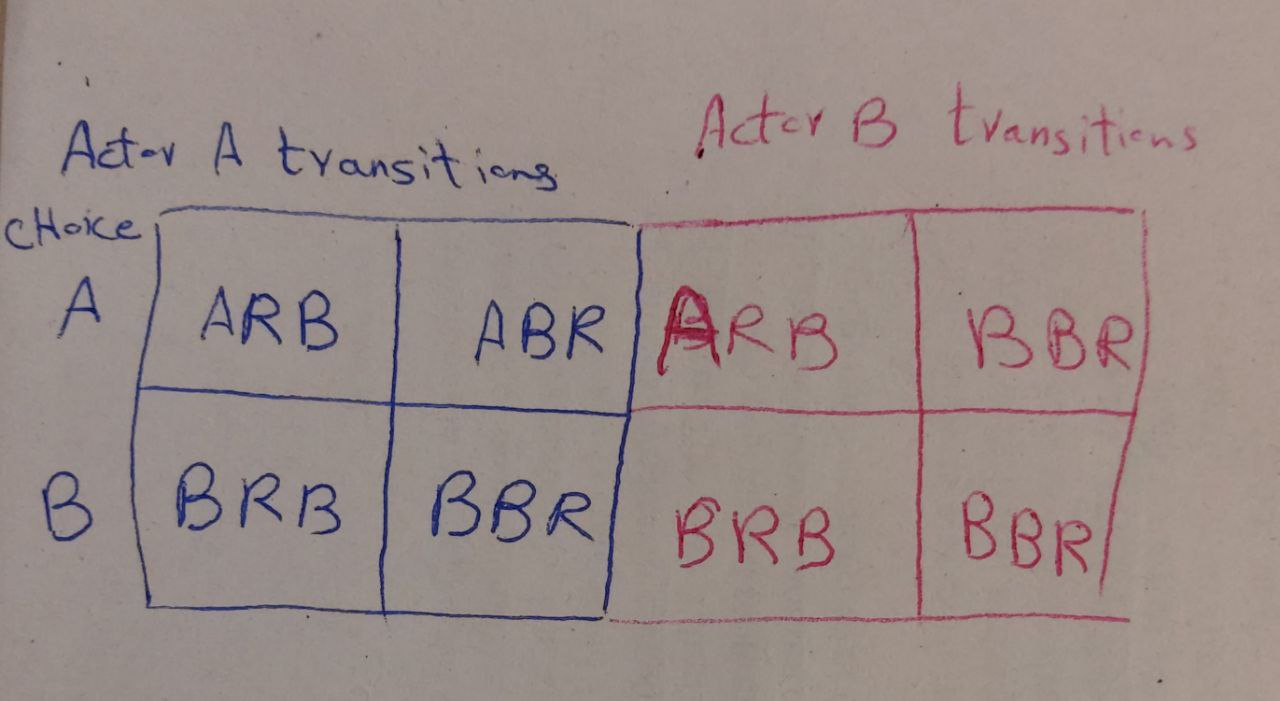 Actor A transitions Actor B transitions
CHoice
A ARB ABR ARB BBR
B BRB BBR BRB BBR